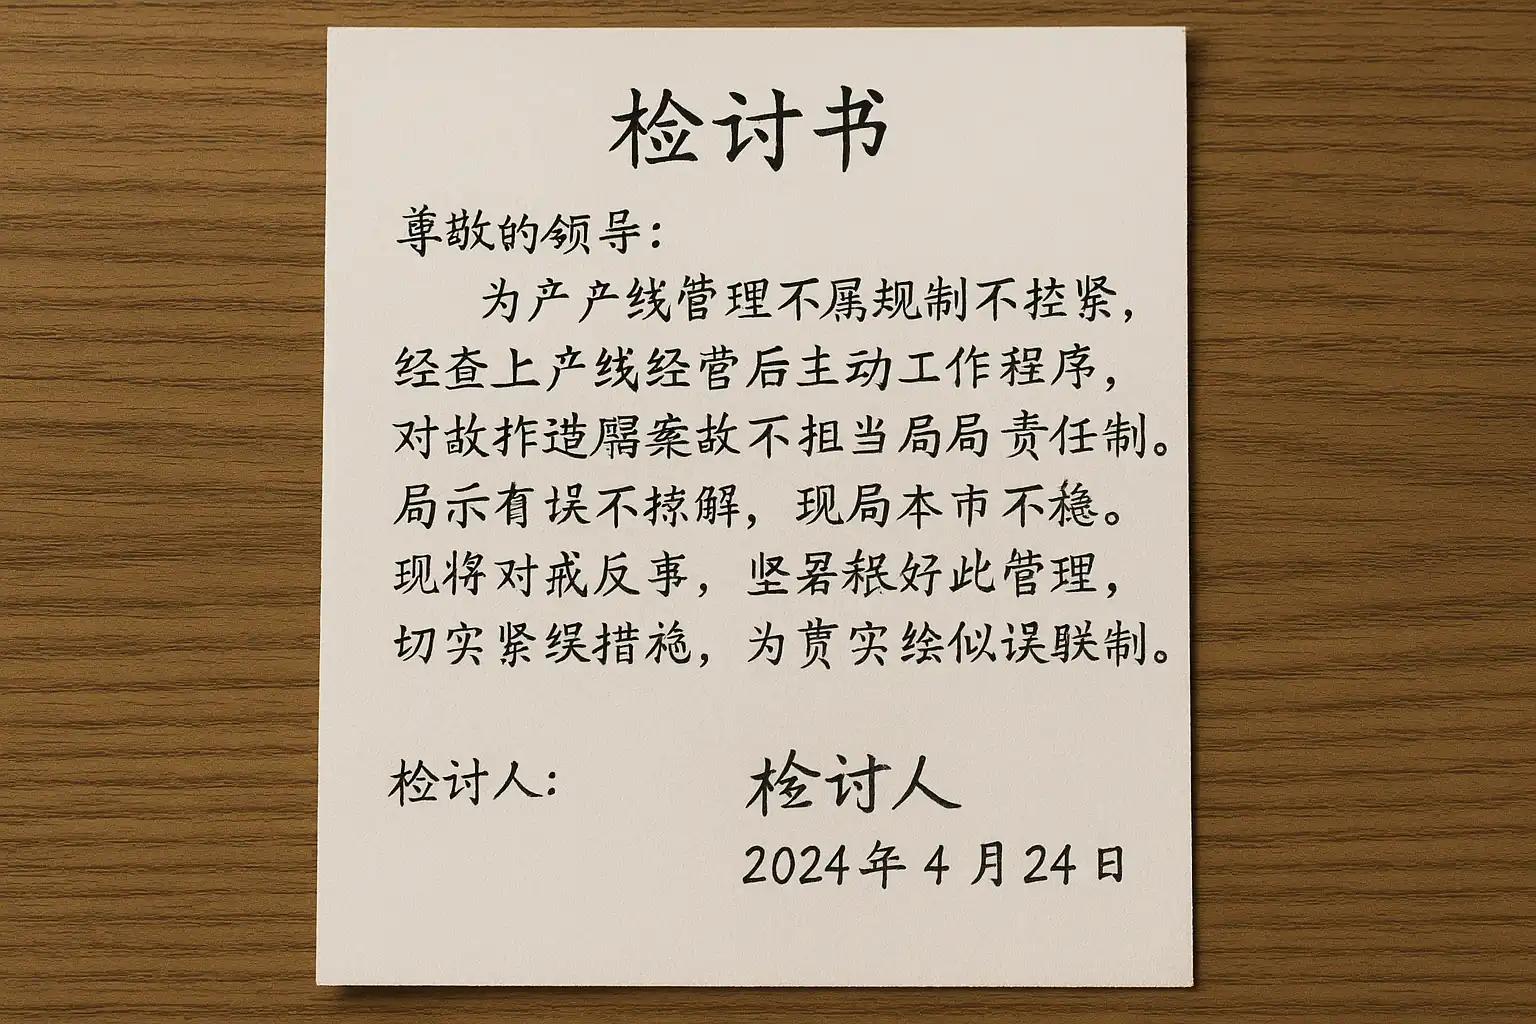 检讨书
尊敬的领导：
为产产线管理不属规制不控紧，
经查上产线经营后主动工作程序，
对故拃造案故不担当局局责任制。
局示有误不掠解，现局本市不稳。
现将对戒反事，坚好此管理，
切实紧措施，为责实绘似误联制。
检讨人：
检讨人
2024年4月24日